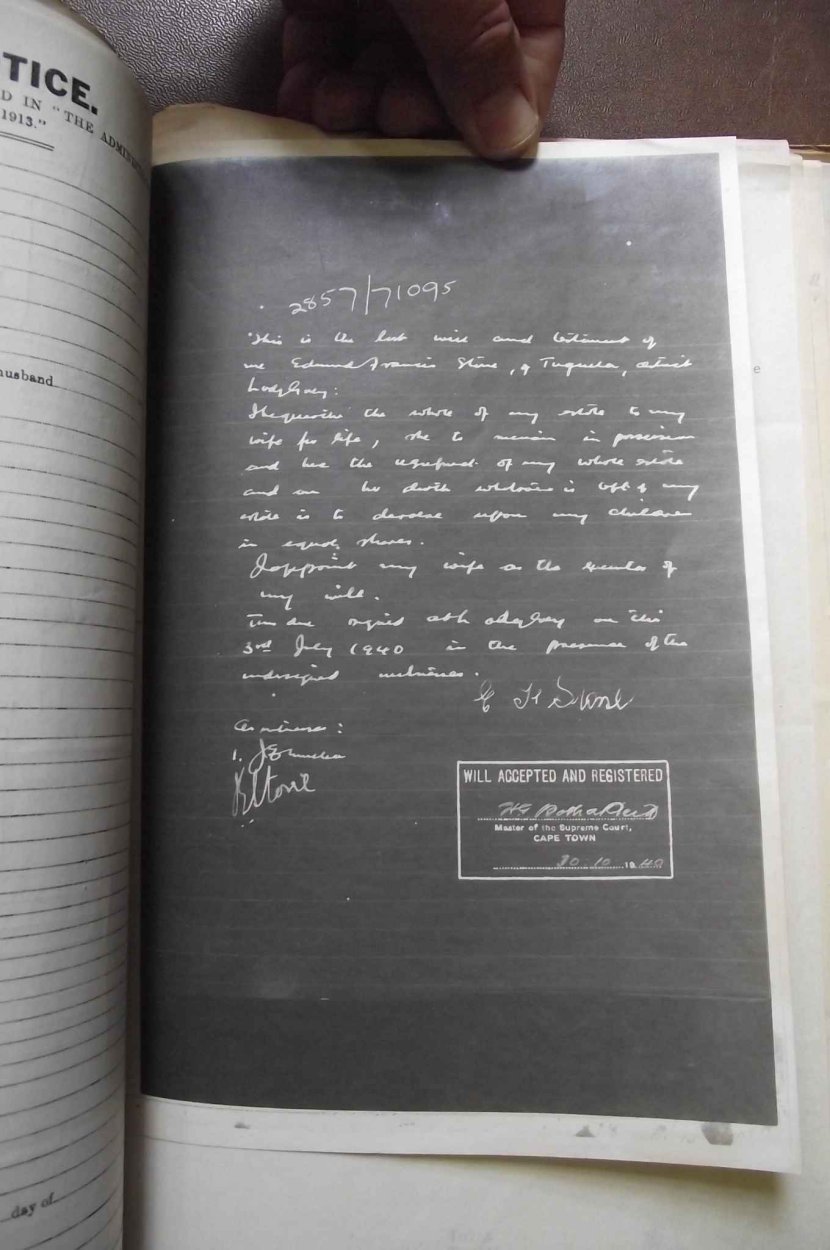 TICE.
D IN "THE ADMINI
1913."
husband
day of
2857/71095
This is the last will and testament of
me Edmund Francis Stone, of Tugela, district
Lady Grey:
I bequeath the whole of my estate to my
wife for life, she to remain in possession
and have the usufruct of my whole estate
and on her death whatever is left of my
estate is to devolve upon my children
in equal shares.
I appoint my wife as the executor of
my will.
Thus done signed at Lady Grey on this
3rd July 1940 in the presence of the
undersigned witnesses.
E F Stone
As witnesses:
1. J
Stone
WILL ACCEPTED AND REGISTERED
Master of the Supreme Court,
CAPE TOWN
30-10 1940